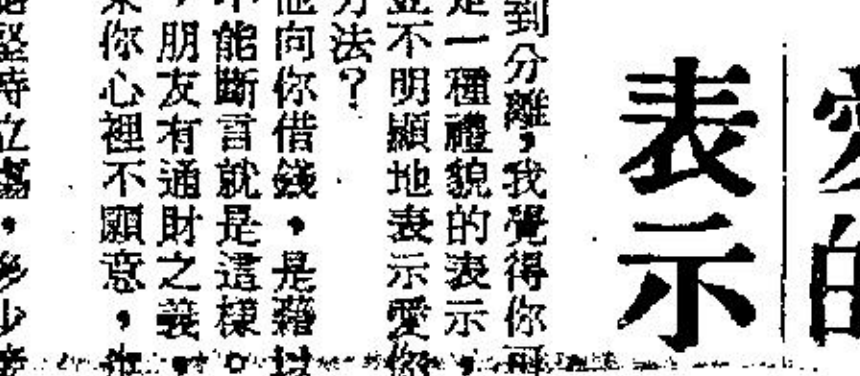 愛的
表示
到分離，我覺得你可
是一種禮貌的表示，
並不明顯地表示愛你
方法？
他向你借錢，是藉以
不能斷言就是這樣。
，朋友有通財之義，
你心裡不願意，
堅持立場，多少